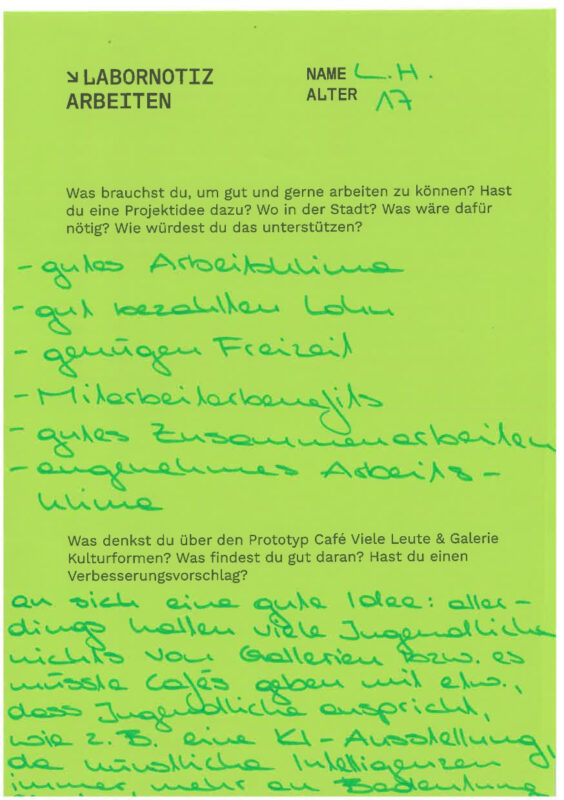 ↘LABORNOTIZ
ARBEITEN
NAME L.H.
ALTER 17
Was brauchst du, um gut und gerne arbeiten zu können? Hast
du eine Projektidee dazu? Wo in der Stadt? Was wäre dafür
nötig? Wie würdest du das unterstützen?
- gutes Arbeitsklima
- gut bezahlten Lohn
- genügen Freizeit
- Mitarbeiterbenefits
- gutes Zusammenarbeiten
- angenehmes Arbeits-
klima
Was denkst du über den Prototyp Café Viele Leute & Galerie
Kulturformen? Was findest du gut daran? Hast du einen
Verbesserungsvorschlag?
an sich eine gute Idee: aller-
dings halten viele Jugendliche
nichts von Gallerien bzw. es
müsste Cafés geben mit etw.,
dass Jugendliche anspricht,
wie z.B. eine KI-Ausstellung,
da künstliche Intelligenzen
immer mehr an Bedeutung